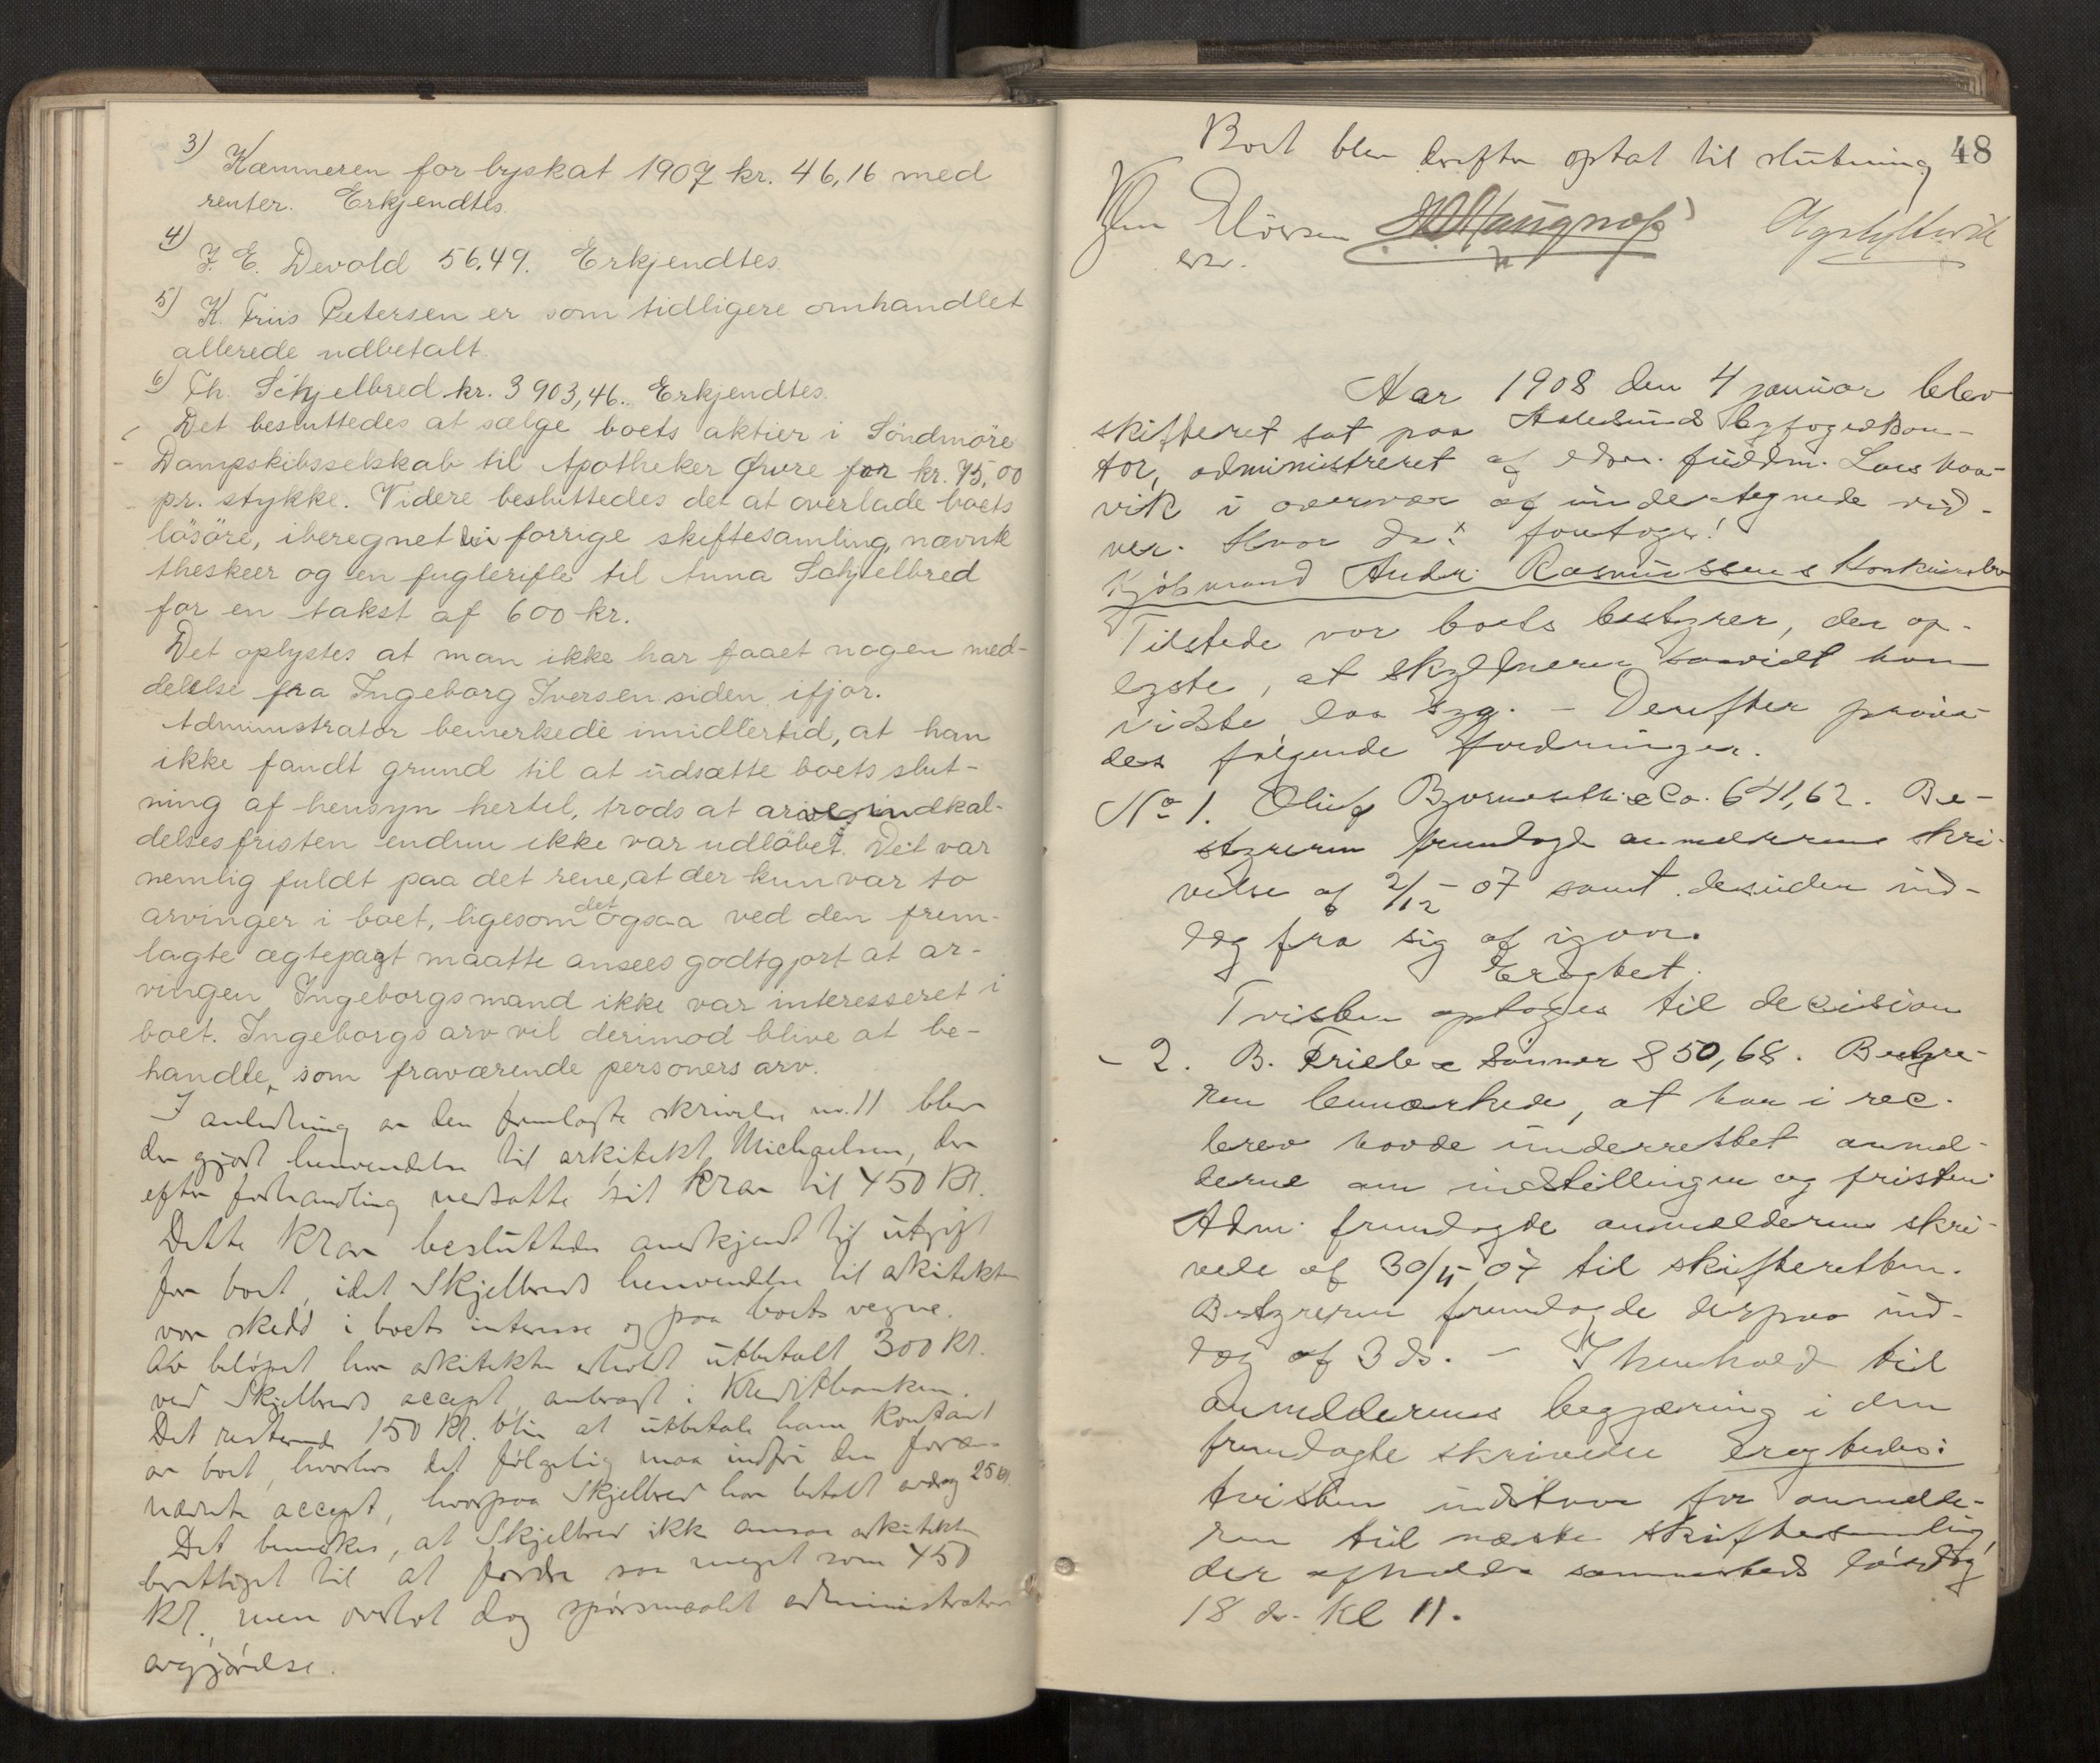 3)
Kæmneren for byskat 1907 kr. 46,16 med
renter. Erkjendtes.
4)
J. E. Devold 56,49. Erkjendtes
5)
K. Friis Petersen er som tidligere omhandlet
allerede udbetalt.
6) Th. Schjelbred kr. 3903,46. Erkjendtes.
Det besluttedes at sælge boets aktier i Søndmøre
Dampskibsselskab til Apotheker Øwre for kr. 75,00
pr. stykke. Videre besluttedes det at overlade boets
løsøre, iberegnet forrige skiftesamling, nævnte
theskeer og en fuglerifle til Anna Schjelbred
for en takst af 600 kr.
Det oplystes at man ikke har faaet nogen med-
delelse fra Ingeborg Iversen siden ifjor.
Administrator bemerkede imidlertid, at han
ikke fandt grund til at udsætte boets slut-
ning af hensyn hertil, trods at arveindkal-
delsesfristen endnu ikke var udløbet. Det var
nemlig fuldt paa det rene, at der kun var to
arvinger i boet, ligesom det ogsaa ved den frem-
lagte ægtepagt maatte ansees godtgjort at ar-
vingen Ingeborgs mand ikke var interesseret i
boet. Ingeborgs arv vil derimod blive at be-
handle, som fraværende personers arv.
I anledning av den fremlagte skrivelse nr. 11 blev
der gjort henvendelse til arkitekt Michaelsen, der
efter forhandling nedsatte sit krav til 450 kr.
Dette krav besluttedes anerkjendt til utgift
for boet, idet Skjelbreds henvendelse til arkitekten
var skedd i boets interesse og paa boets vegne.
Av beløpet har arkitekten erholdt utbetalt 300 kr.
ved Skjelbreds accept, anbragt i Kreditbanken.
Det resterende 150 kr. blir at utbetale ham kontant
av boet, hvorhos det følgelig maa indfri den foran
nævnte accept, hvorpaa Skjelbred har betalt avdrag 25 kr.
Det bemerkes, at Skjelbred ikke ansaa arkitekten
berettiget til at fordre saa meget som 450
kr., men overlot dog spørsmaalet administrators
avgjørelse.
48
Boet blev derefter optat til slutning
Aar 1908 den 4 januar blev
skifteret sat paa Aalesunds byfogedkon-
tor, administreret af edsv. fuldm. Lars Haa-
vik i overvær af undertegnede vid-
ner. Hvor da foretoges:
Kjøbmand Andr. Rasmussens Konkursbo
Tilstede var boets bestyrer, der op-
lyste, at skyldneren saavidt han
vidste laa syg. – Derefter prøve-
des følgende fordringer.
No 1. Oluf Bjørneseth & Co. 641,62. Be-
styreren fremlagde anmelderens skri-
velse af 2/12 – 07 samt desuden ind-
læg fra sig af igaar.
Eragtet:
Tvisten optages til decision
– 2. B. Friele & Sønner 850,68. Bestyre-
ren bemærkede, at han i rec.
brev havde underrettet anmel-
derne om indstillingen og fristen.
Adm. fremlagde anmelderens skri-
velse af 30/11 07 til skifteretten.
Bestyreren fremlagde derpaa ind-
læg af 3 ds. – I henhold til
anmelderens begjæring i den
fremlagte skrivelse eragtedes:
tvisten udstaar for anmelde-
ren til næste skiftesamling,
der afholdes sammesteds lørdag
18 ds. kl 11.